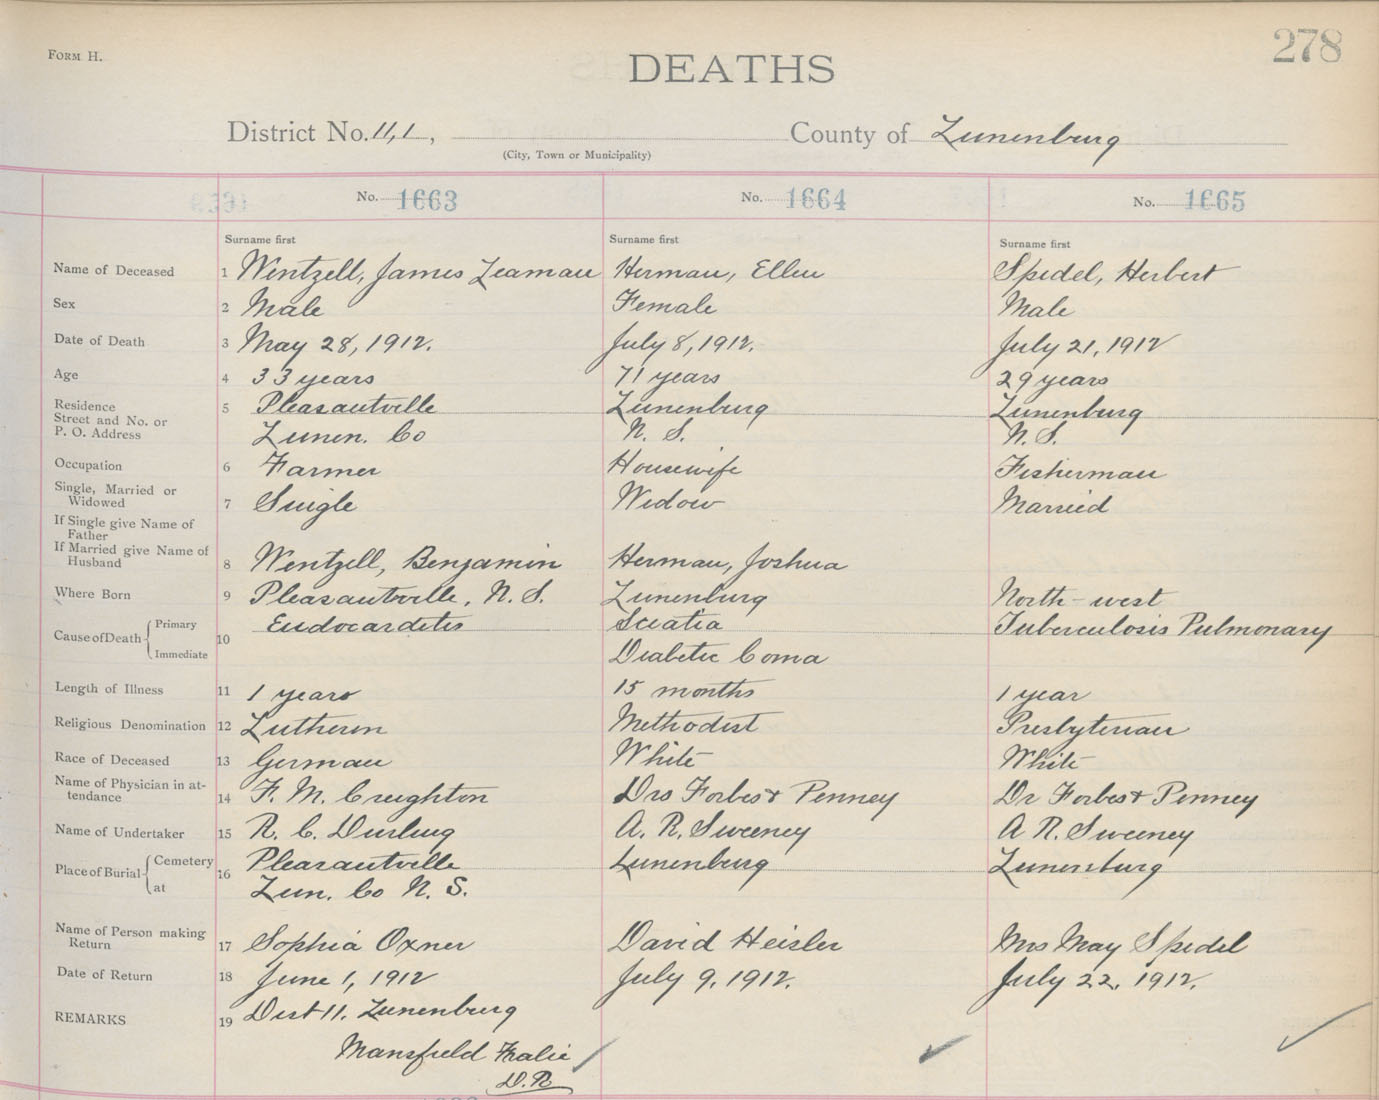 278
FORM H.
DEATHS
District No. 11,1, County of Lunenburg
(City, Town or Municipality)
No. 1663 No. 1664 No. 1665
Surname first Surname first Surname first
Name of Deceased 1 Wentzell, James Leaman Herman, Ellen Spidel, Herbert
Sex 2 Male Female Male
Date of Death 3 May 28, 1912. July 8, 1912. July 21, 1912
Age 4 33 years 71 years 29 years
Residence 5 Pleasantville Lunenburg Lunenburg
Street and No. or
P. O. Address Lunen. Co N. S. N. S.
Occupation 6 Farmer Housewife Fisherman
Single, Married or
Widowed 7 Single Widow Married
If Single give Name of
Father
If Married give Name of
Husband 8 Wentzell, Benjamin Herman, Joshua
Where Born 9 Pleasantville, N. S. Lunenburg North-west
Cause of Death Primary 10 Endocarditis Sciatia Tuberculosis Pulmonary
Immediate Diabetic Coma
Length of Illness 11 1 years 15 months 1 year
Religious Denomination 12 Lutheran Methodist Presbyterian
Race of Deceased 13 German White White
Name of Physician in at-
tendance 14 F. M. Creighton Drs Forbes & Penney Dr Forbes & Penney
Name of Undertaker 15 R. C. Durling A. R. Sweeney A R. Sweeney
Place of Burial Cemetery 16 Pleasantville Lunenburg Lunenburg
at Lun. Co N. S.
Name of Person making
Return 17 Sophia Oxner David Heisler Mrs May Spidel
Date of Return 18 June 1, 1912 July 9, 1912. July 22, 1912.
REMARKS 19 Dist 11. Lunenburg
Mansfield Fralic
D. R